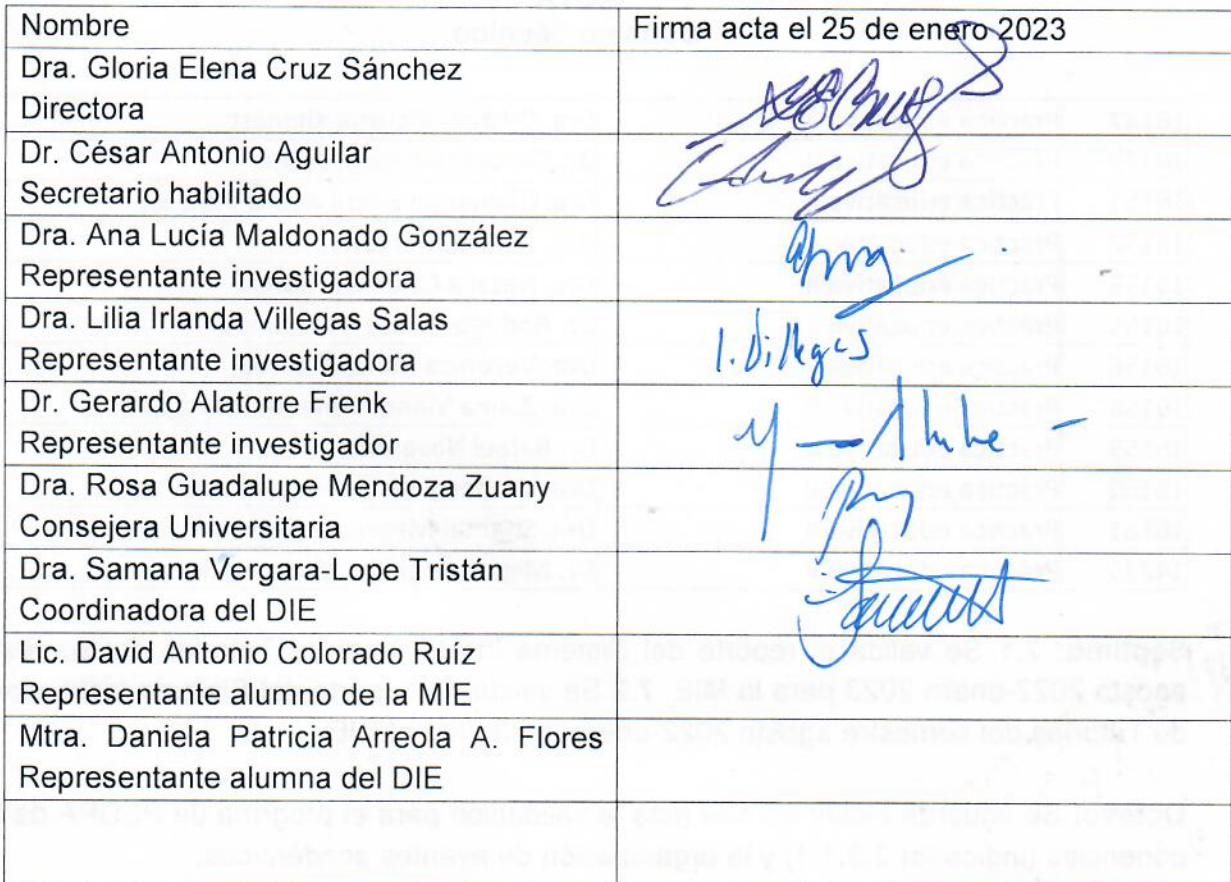 Nombre
Firma acta el 25 de enero 2023
Dra. Gloria Elena Cruz Sánchez
Directora
Dr. César Antonio Aguilar
Secretario habilitado
Dra. Ana Lucía Maldonado González
Representante investigadora
Dra. Lilia Irlanda Villegas Salas
Representante investigadora
I. Villegas
Dr. Gerardo Alatorre Frenk
Representante investigador
Dra. Rosa Guadalupe Mendoza Zuany
Consejera Universitaria
Dra. Samana Vergara-Lope Tristán
Coordinadora del DIE
Lic. David Antonio Colorado Ruíz
Representante alumno de la MIE
Mtra. Daniela Patricia Arreola A. Flores
Representante alumna del DIE